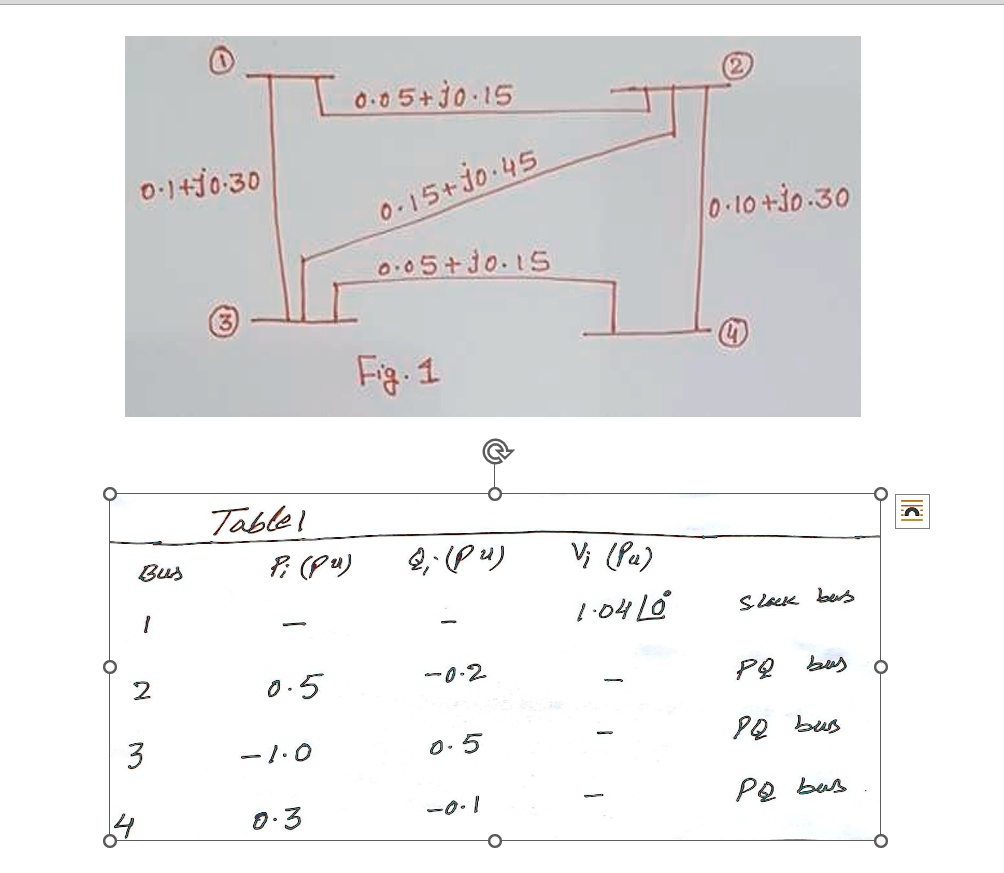 ① ②
0.05+j0.15
0.1+j0.30 0.15+j0.45 0.10+j0.30
0.05+j0.15
③ ④
Fig. 1
Table 1
Bus Pi (Pu) Qi (Pu) Vi (Pu)
1 – – 1.04∠0° Slack bus
2 0.5 -0.2 – PQ bus
3 -1.0 0.5 – PQ bus
4 0.3 -0.1 – PQ bus